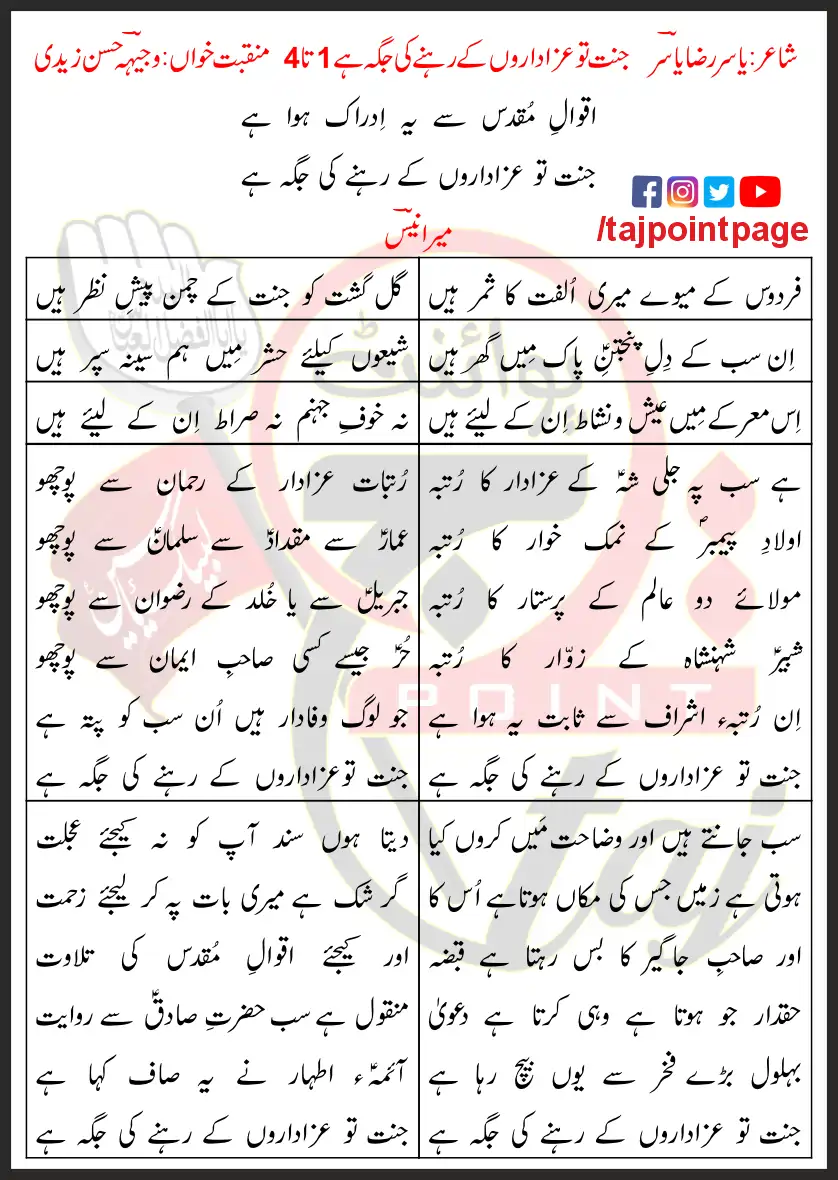 شاعر: یاسر رضا یاسرؔ جنت تو عزاداروں کے رہنے کی جگہ ہے 1 تا 4 منقبت خواں: وجیہہؔ حسن زیدی
اقوالِ مُقدس سے یہ اِدراک ہوا ہے
جنت تو عزاداروں کے رہنے کی جگہ ہے
/tajpointpage
میر انیسؔ
فردوس کے میوے میری اُلفت کا ثمر ہیں
گل گشت کو جنت کے چمن پیشِ نظر ہیں
اِن سب کے دِلِ پنجتنِؑ پاک مِیں گھر ہیں
شیعوں کیلئے حشر مِیں ہم سینہ سپر ہیں
اِس معرکے مِیں عیش و نشاط اِن کے لیئے ہیں
نہ خوفِ جہنم نہ صراط اِن کے لیئے ہیں
ہے سب پہ جلی شہؑ کے عزادار کا رُتبہ
اولادِ پیمبرؐ کے نمک خوار کا رُتبہ
مولائے دو عالم کے پرستار کا رُتبہ
شبیرؑ شہنشاہ کے زوّار کا رُتبہ
اِن رُتبہء اشراف سے ثابت یہ ہوا ہے
جنت تو عزاداروں کے رہنے کی جگہ ہے
رُتبات عزادار کے رحمان سے پوچھو
عمارؑ سے مقدادؑ سے سلمانؑ سے پوچھو
جبریلؑ سے یا خُلد کے رضوان سے پوچھو
حُرؑ جیسے کسی صاحبِ ایمان سے پوچھو
جو لوگ وفادار ہیں اُن سب کو پتہ ہے
جنت تو عزاداروں کے رہنے کی جگہ ہے
سب جانتے ہیں اور وضاحت مَیں کروں کیا
ہوتی ہے زمیں جس کی مکاں ہوتا ہے اُس کا
اور صاحبِ جاگیر کا بس رہتا ہے قبضہ
حقدار جو ہوتا ہے وہی کرتا ہے دعویٰ
بہلول بڑے فخر سے یوں بیچ رہا ہے
جنت تو عزاداروں کے رہنے کی جگہ ہے
دیتا ہوں سند آپ کو نہ کیجئے عجلت
گر شک ہے میری بات پہ کر لیجئے زحمت
اور کیجئے اقوالِ مُقدس کی تلاوت
منقول ہے سب حضرتِ صادقؑ سے روایت
آئمہؑ ء اطہار نے یہ صاف کہا ہے
جنت تو عزاداروں کے رہنے کی جگہ ہے
پوائنٹ
POINT
taj